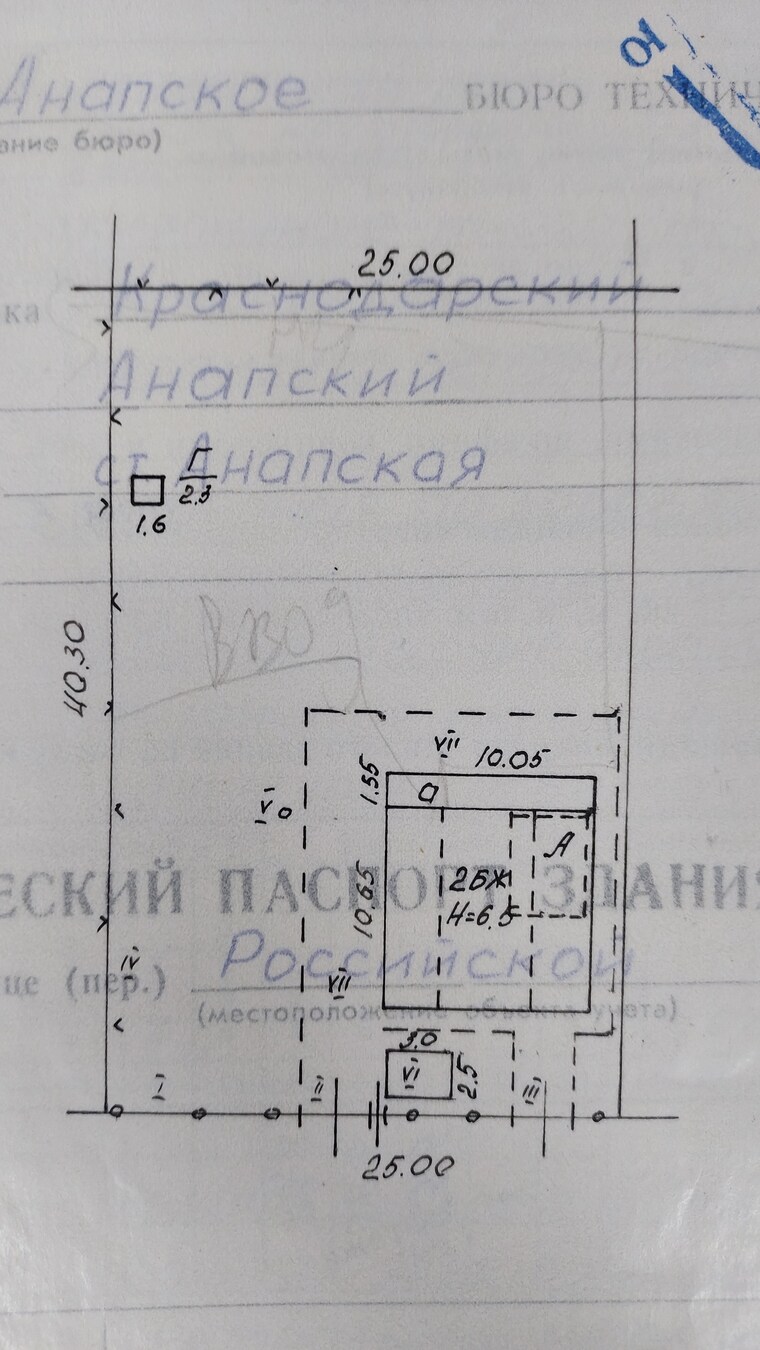 Анапское БЮРО ТЕХНИЧ
ание бюро)
25.00
ка Краснодарский
Анапский
ст. Анапская
Г
2.3
1.6
ВВОД
40.30
VII
10.05
1.55
а
V
А
2БЖ
Н=6.5
10.65
ЕСКИЙ ПАСПОРТ ЗДАНИЯ
IV
VII
це (пер.) Российской
(местоположение объекта учета)
3.0
I
II
VI
2.5
III
25.00